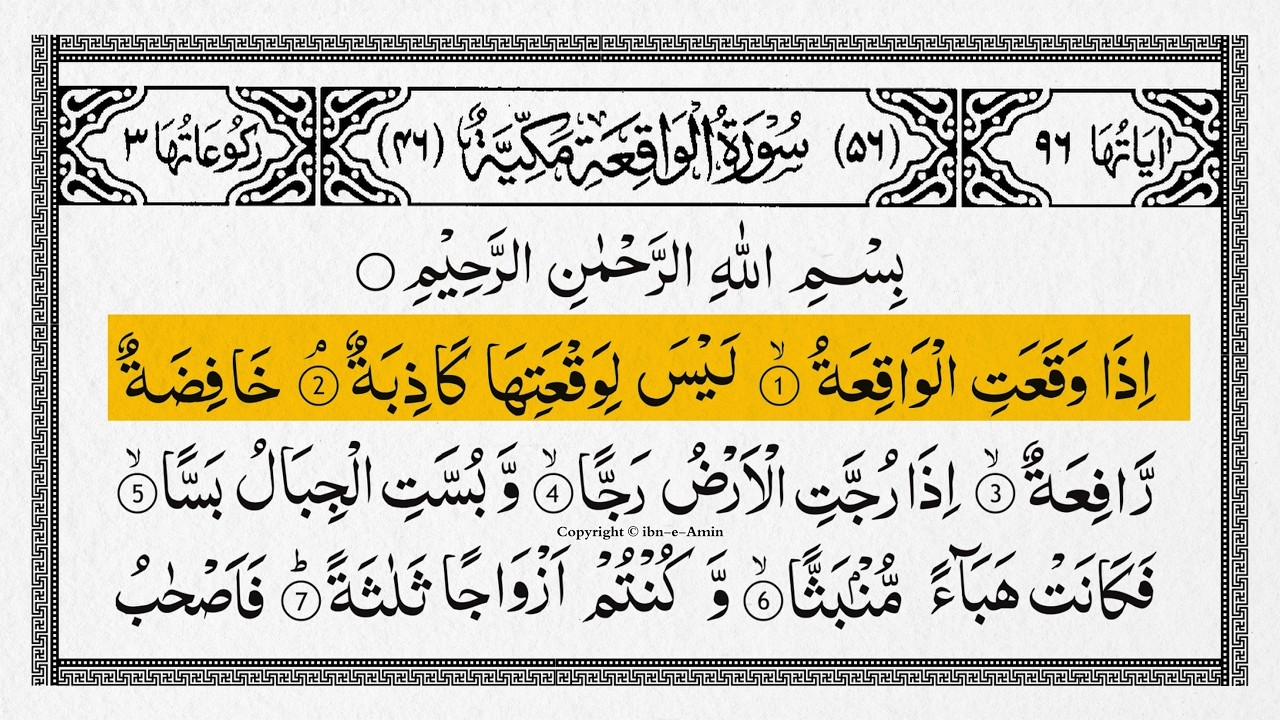 اٰيَاتُهَا ٩٦ (٥٦) سُوْرَةُ الْوَاقِعَةِ مَكِّيَّةٌ (٤٦) رُكُوْعَاتُهَا ٣
بِسْمِ اللّٰهِ الرَّحْمٰنِ الرَّحِيْمِ ○
اِذَا وَقَعَتِ الْوَاقِعَةُ ۙ① لَيْسَ لِوَقْعَتِهَا كَاذِبَةٌ ۘ② خَافِضَةٌ
رَّافِعَةٌ ۙ③ اِذَا رُجَّتِ الْاَرْضُ رَجًّا ۙ④ وَّ بُسَّتِ الْجِبَالُ بَسًّا ۙ⑤
Copyright © ibn-e-Amin
فَكَانَتْ هَبَآءً مُّنْۢبَثًّا ۙ⑥ وَّ كُنْتُمْ اَزْوَاجًا ثَلٰثَةً ؕ⑦ فَاَصْحٰبُ